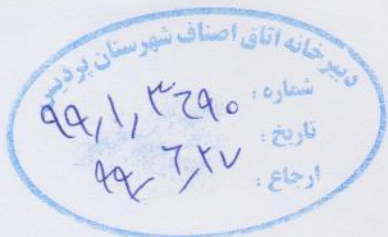 دبیرخانه اتاق اصناف شهرستان پردیس
شماره : ۹۹٫۱٫۳۶۹۰
تاریخ : ۹۹٫۶٫۲۷
ارجاع :